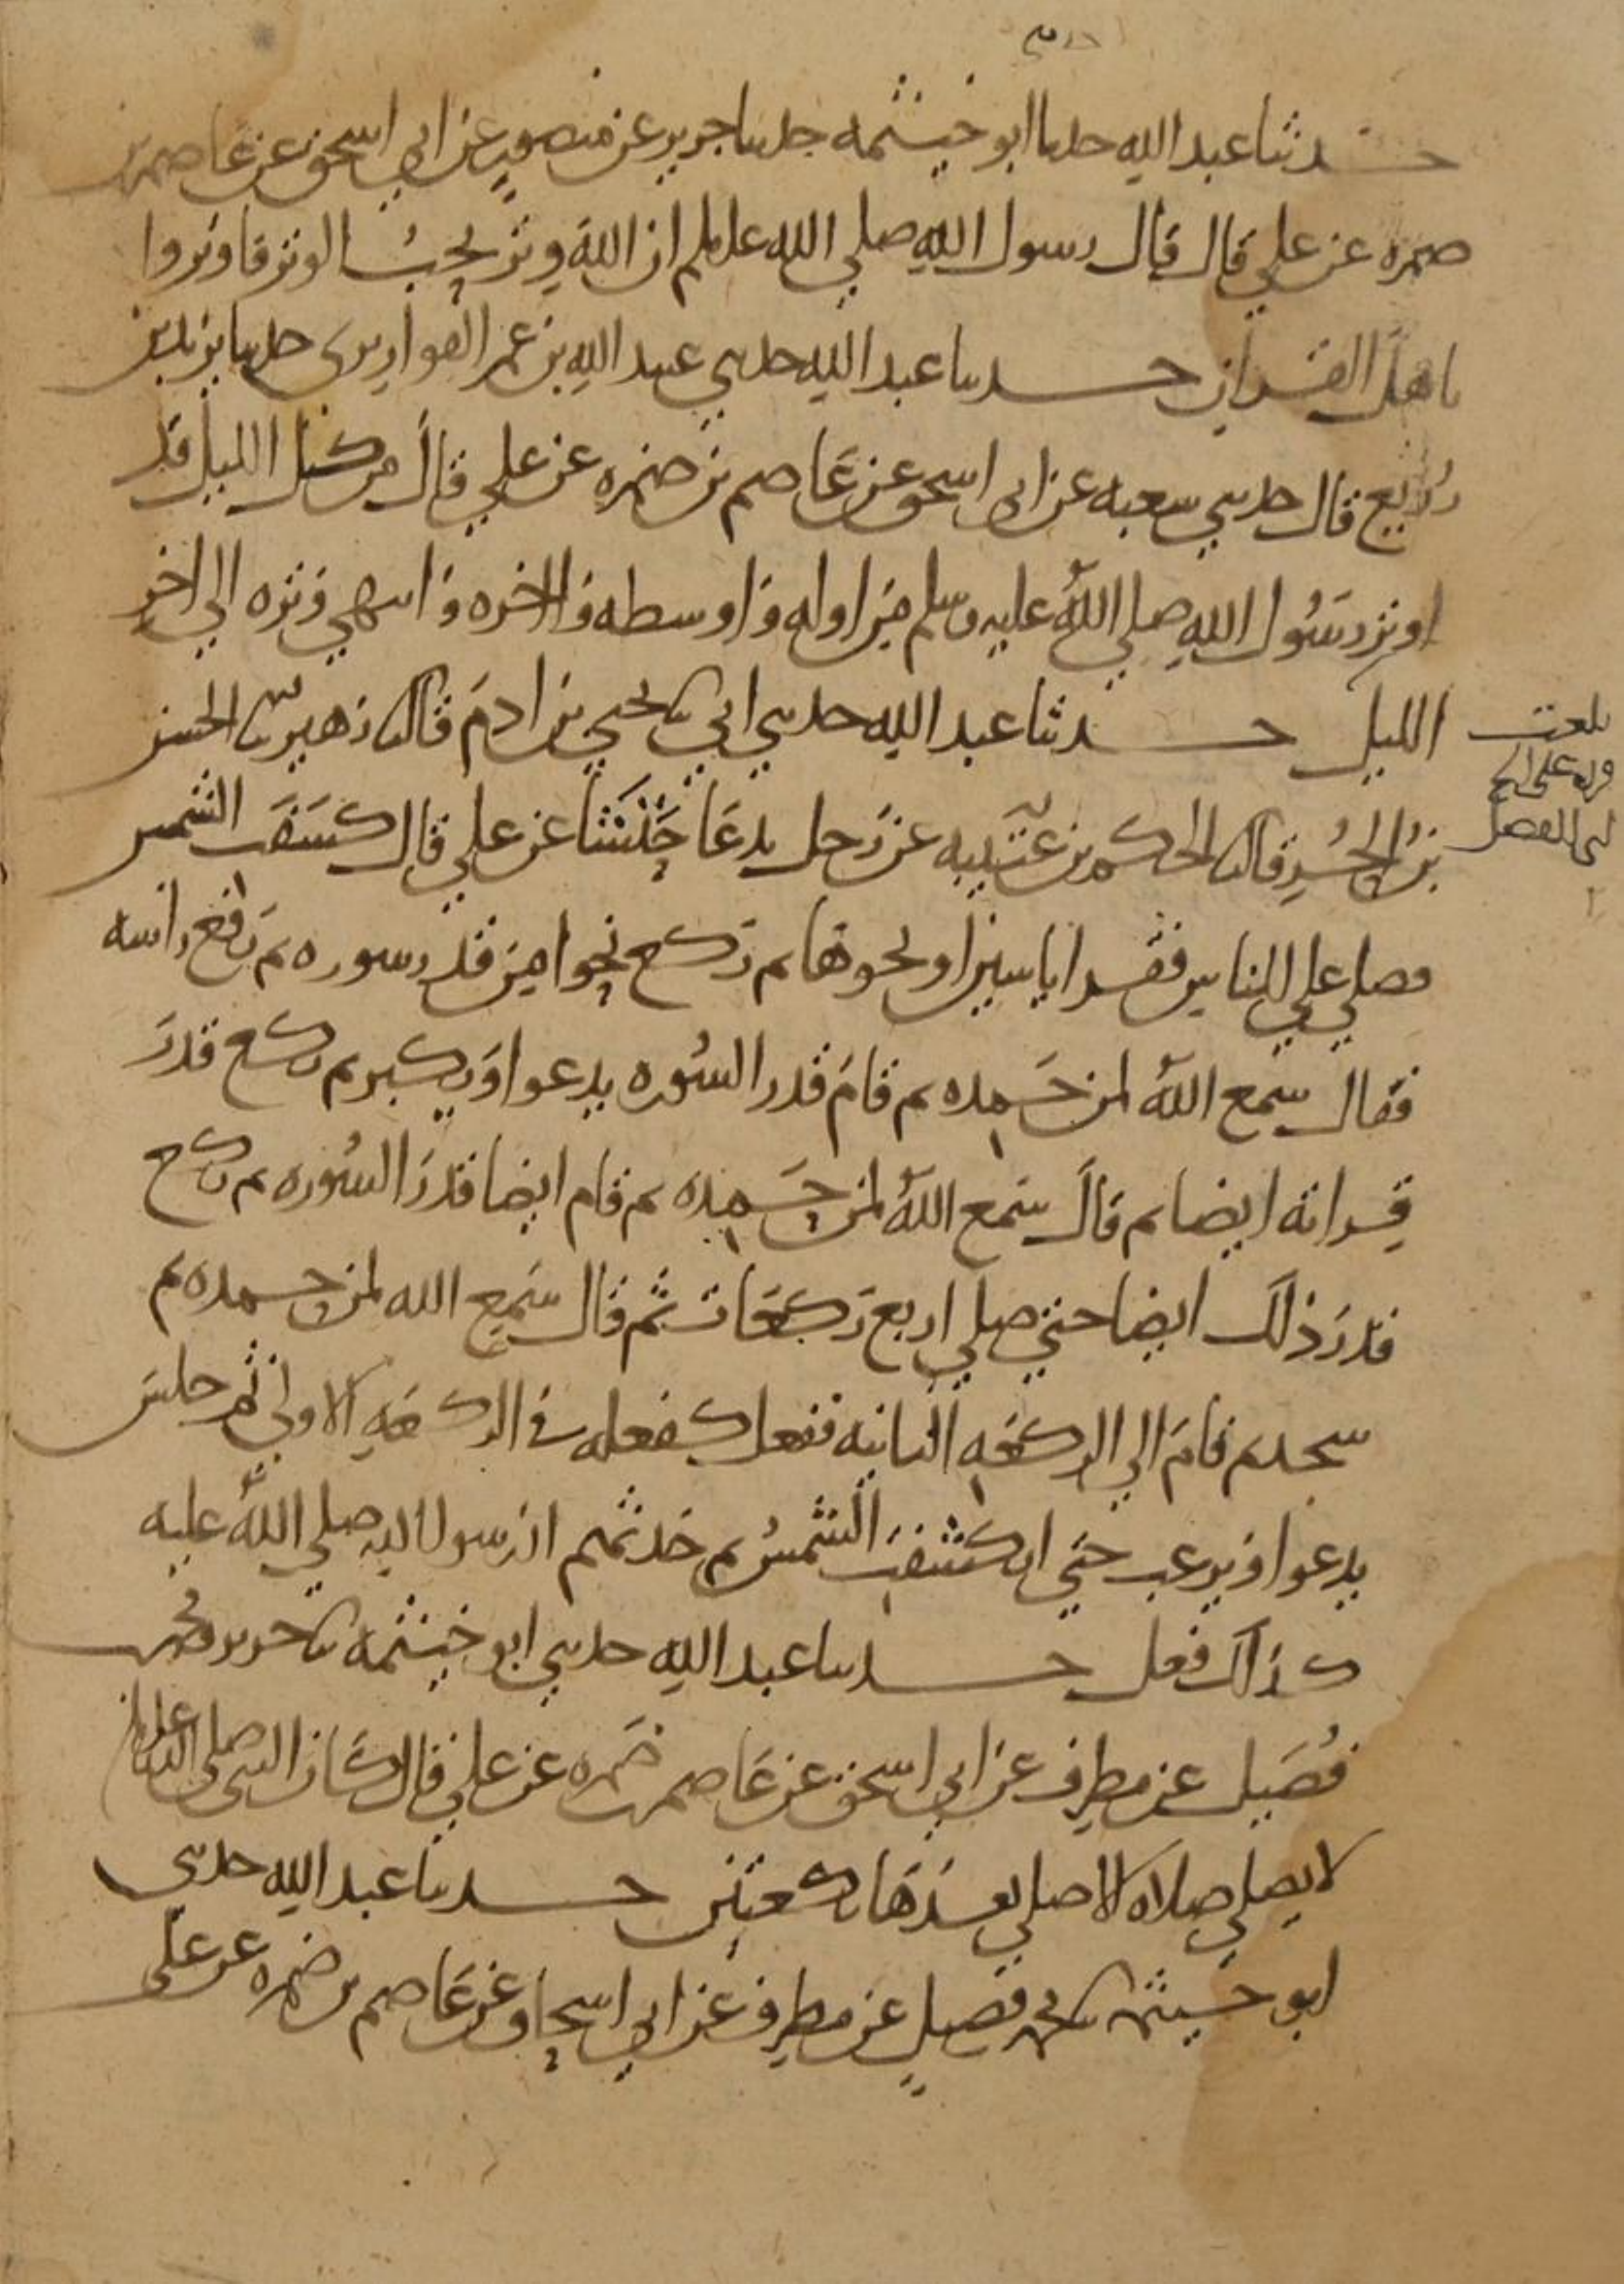 حدثنا عبد الله حدثنا ابو خيثمه حدثنا جرير عن منصور عن ابي اسحق عن عاصم بن
ضمره عن علي قال قال رسول الله صلي الله عليه وسلم ان الله وتر يحب الوتر فاوتروا
يا اهل القران حدثنا عبد الله حدثني عبيد الله بن عمر القواريري حدثنا يزيد بن
زريع قال حدثني شعبه عن ابي اسحق عن عاصم بن ضمره عن علي قال من كل الليل قد
اوتر رسول الله صلي الله عليه وسلم من اوله واوسطه واخره وانتهي وتره الي اخر
الليل حدثنا عبد الله حدثني ابي ثنا يحيي بن ادم قال ثنا زهير ثنا الحسن
بن الحر قال ثنا الحكم بن عتيبه عن رجل يدعا حنشا عن علي قال كسفت الشمس
فصلي علي للناس فقرا ياسين او نحوها ثم ركع نحوا من قدر سوره ثم رفع راسه
فقال سمع الله لمن حمده ثم قام قدر السوره يدعوا ويكبر ثم ركع قدر
قراته ايضا ثم قال سمع الله لمن حمده ثم قام ايضا قدر السوره ثم ركع
قدر ذلك ايضا حتي صلي اربع ركعات ثم قال سمع الله لمن حمده ثم
سجد ثم قام الي الركعه الثانيه ففعل كفعله في الركعه الاولي ثم جلس
يدعوا ويرغب حتي انكشفت الشمس ثم حدثهم ان رسول الله صلي الله عليه
كذلك فعل حدثنا عبد الله حدثني ابو خيثمه ثنا جرير ومحمد بن
فضيل عن مطرف عن ابي اسحق عن عاصم بن ضمره عن علي قال كان النبي صلي الله عليه وسلم
لا يصلي صلاه الا صلي بعدها ركعتين حدثنا عبد الله حدثني
ابو خيثمه ثنا محمد بن فضيل عن مطرف عن ابي اسحاق عن عاصم بن ضمره عن علي
بلغت